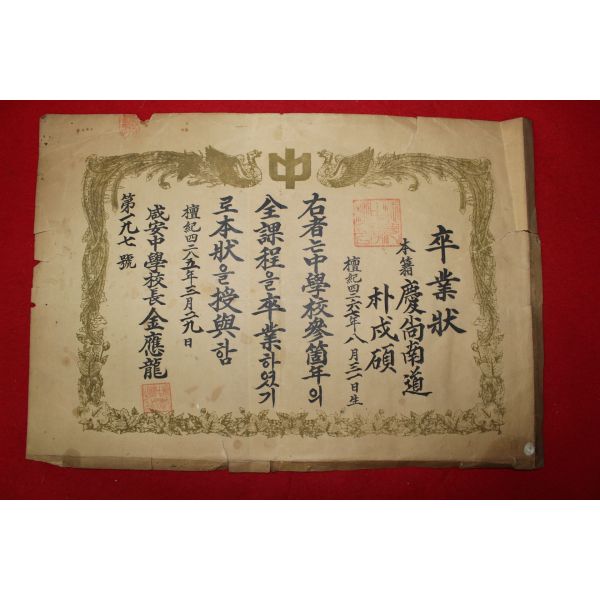 中
卒業狀
本籍 慶尚南道
碩
檀紀四二六七年八月三一日生
右者는中學校參箇年의
全課程을卒業하였기
로本狀을授與함
檀紀四二八五年三月二九日
咸安中學校長 金應龍
第一九七號